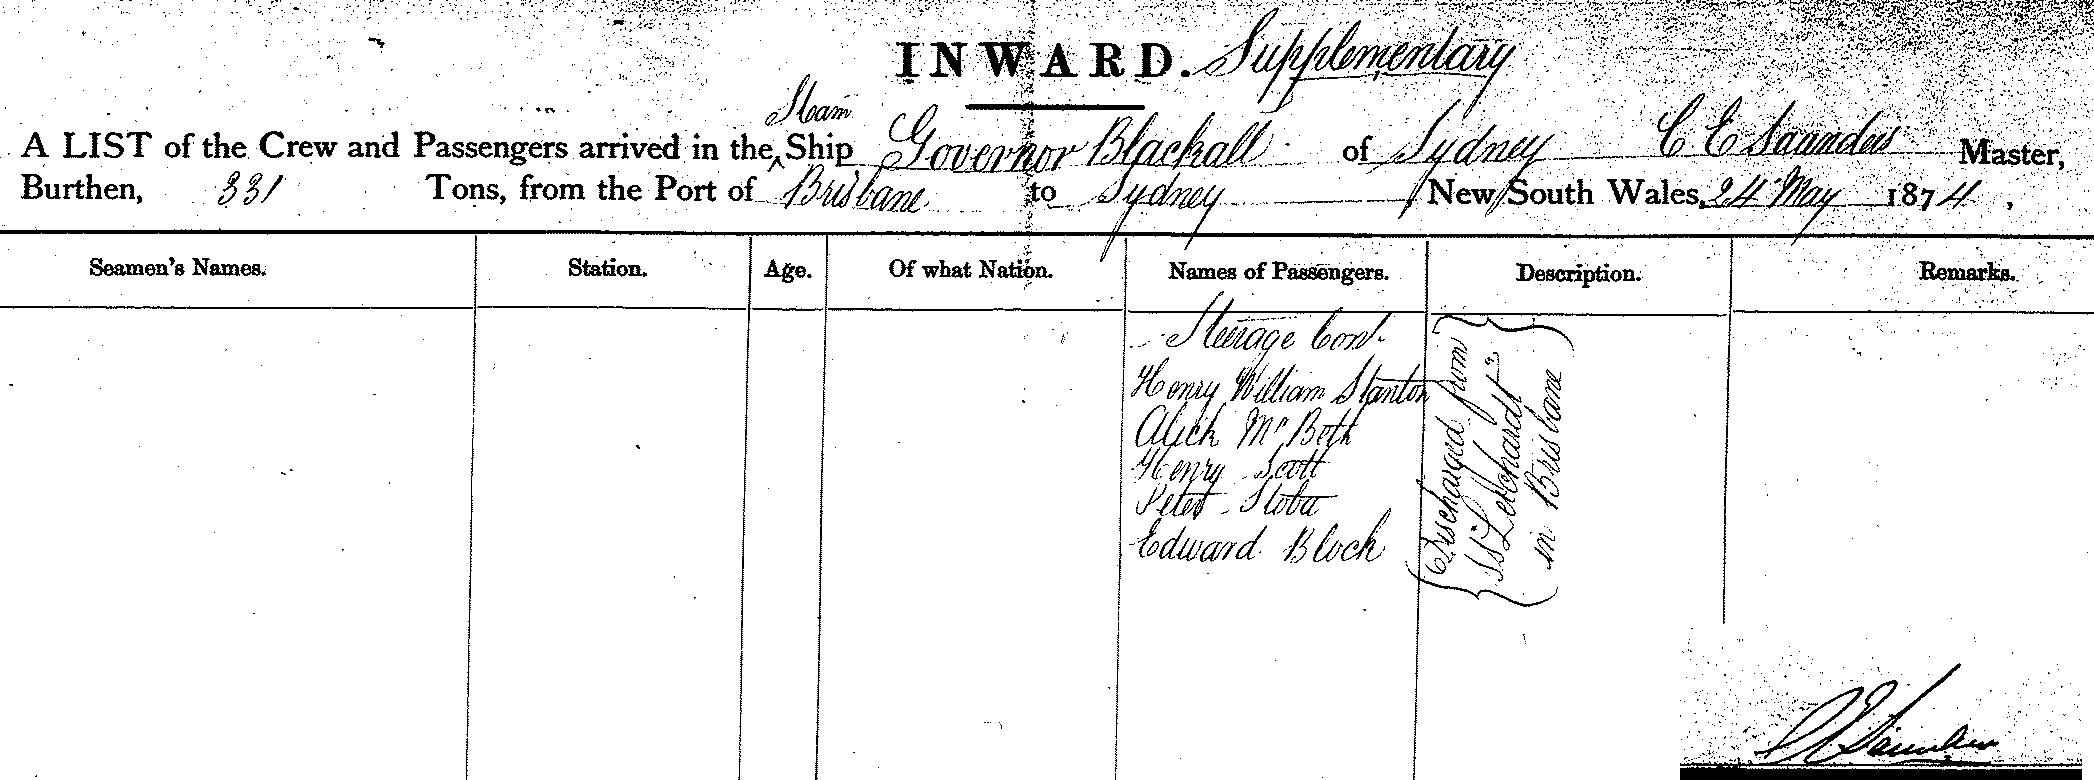 INWARD. Supplementary
Steam
A LIST of the Crew and Passengers arrived in the ^ Ship Governor Blackall of Sydney C E Saunders Master,
Burthen, 331 Tons, from the Port of Brisbane to Sydney New South Wales, 24 May 1874,
Seamen's Names. Station. Age. Of what Nation. Names of Passengers. Description. Remarks.
Steerage Cont.
Henry William Stanton
Alick Mc Beth
Henry Scott
Peter Stoba
Edward Block
Discharged from
SS "Leichardt"
in Brisbane
C E Saunders